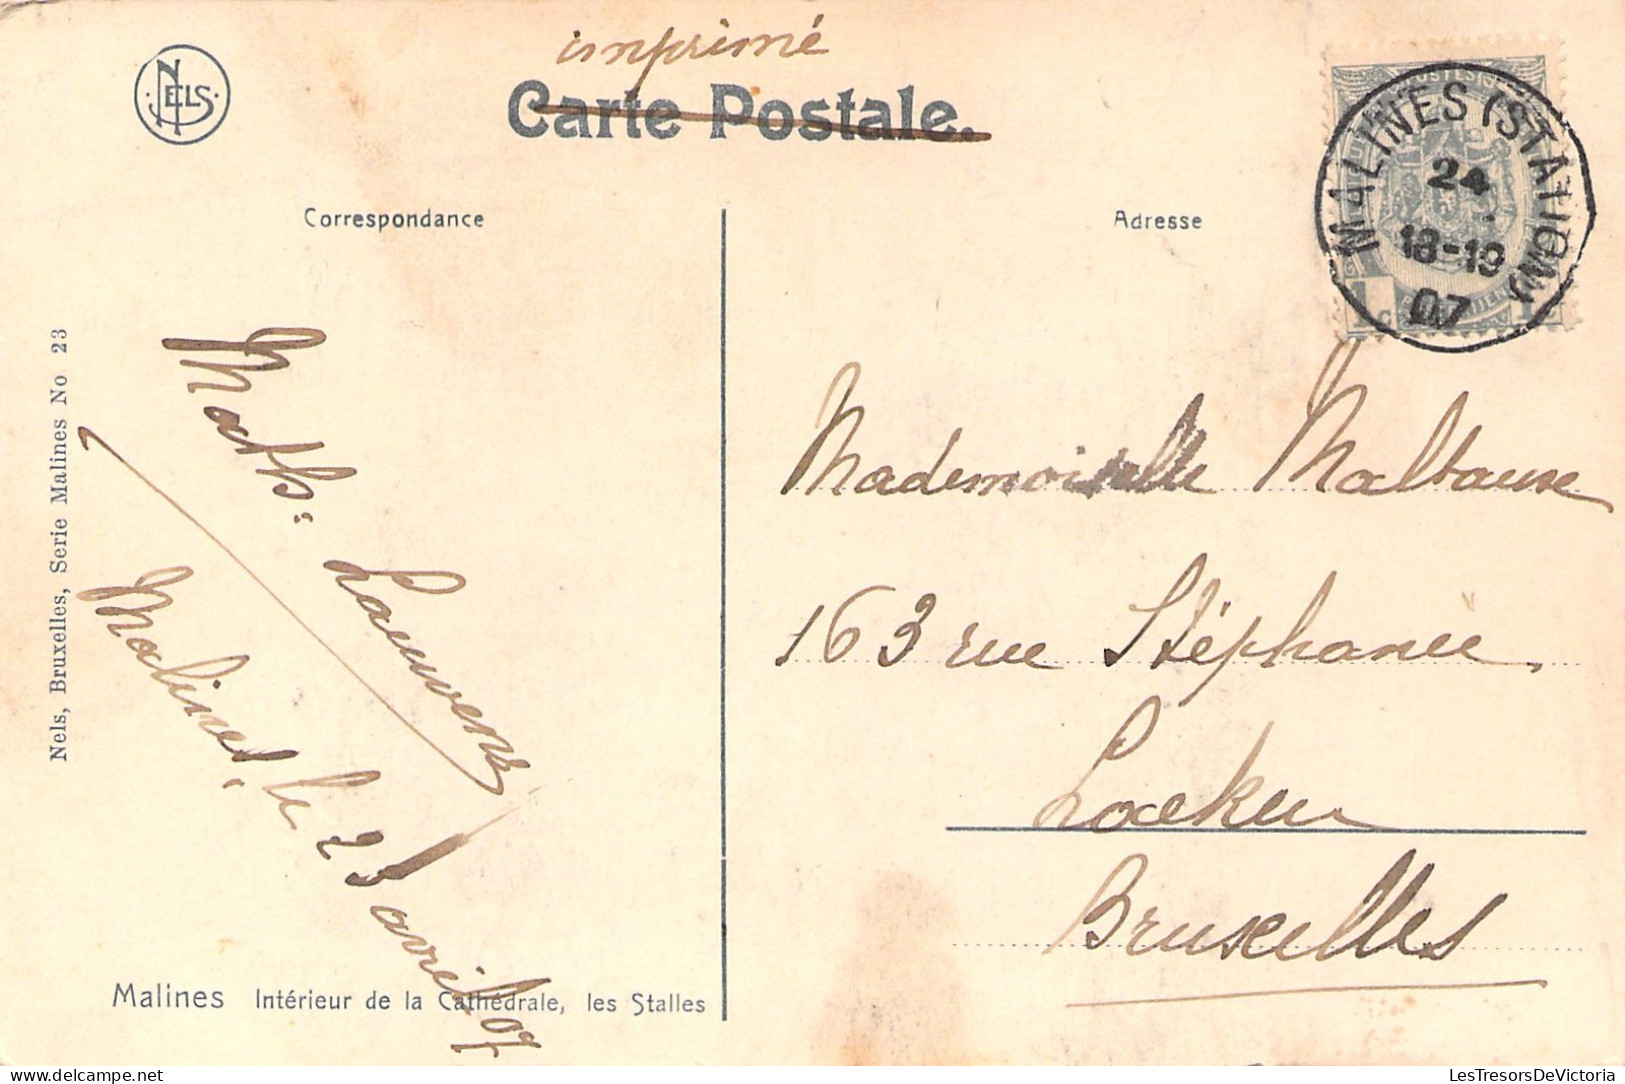 imprimé
NELS
Carte Postale.
MALINES (STATION)
24
18-19
07
Correspondance
Adresse
Nels, Bruxelles, Serie Malines No 23
Math: Lauwens
Malines, le 23 avril 07
Mademoiselle
163 rue Stéphanie
Laeken
Bruxelles
Malines Intérieur de la Cathédrale, les Stalles
LesTresorsDeVictoria